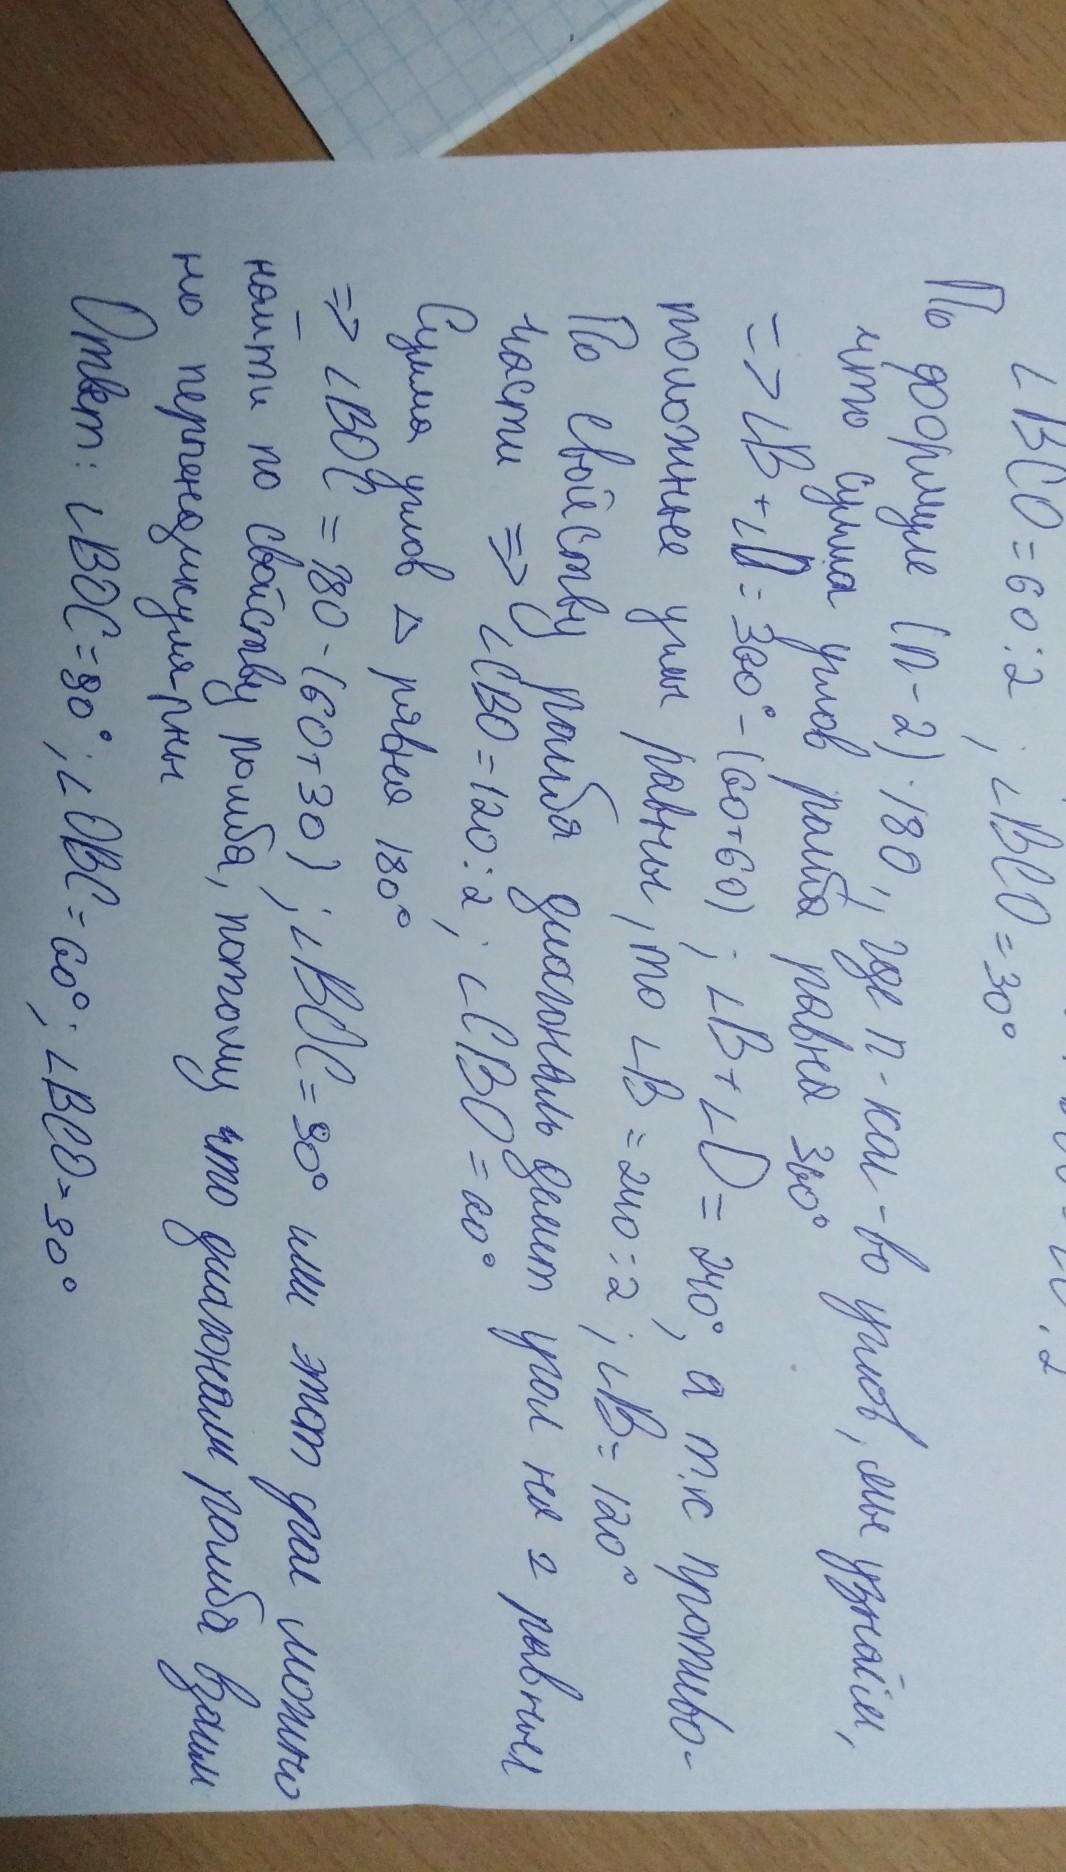 ∠BCO = 60 : 2 ; ∠BCO = 30°
По формуле (n-2)·180, где n-кол-во углов, мы узнаём,
что сумма углов ромба равна 360°
=> ∠B + ∠D = 360° - (60+60) ; ∠B + ∠D = 240°, а т.к противо-
положные углы равны, то ∠B = 240 : 2 ; ∠B = 120°
По свойству ромба диагональ делит угол на 2 равные
части => ∠CBO = 120 : 2 ; ∠CBO = 60°
Сумма углов △ равна 180°
=> ∠BOC = 180 - (60+30) ; ∠BOC = 90° или этот угол можно
найти по свойству ромба, потому что диагонали ромба взаим
но перпендикулярны
Ответ: ∠BOC = 90° ; ∠OBC = 60° ; ∠BCO = 30°